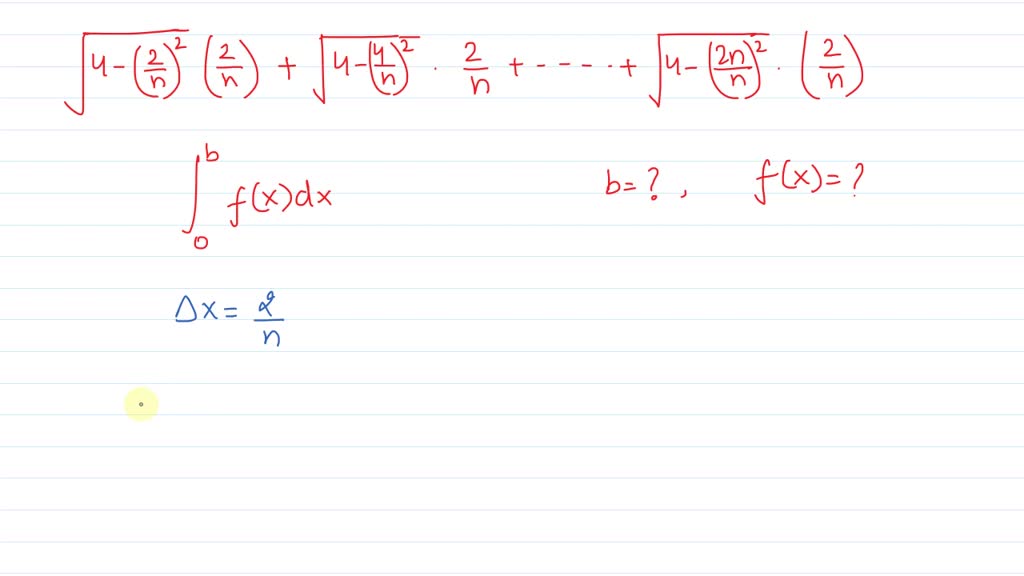 √(4-(2/n)²) (2/n) + √(4-(4/n)²) · 2/n + ----- + √(4-(2n/n)²) · (2/n)
∫₀ᵇ f(x)dx b=?, f(x)=?
Δx = 2/n